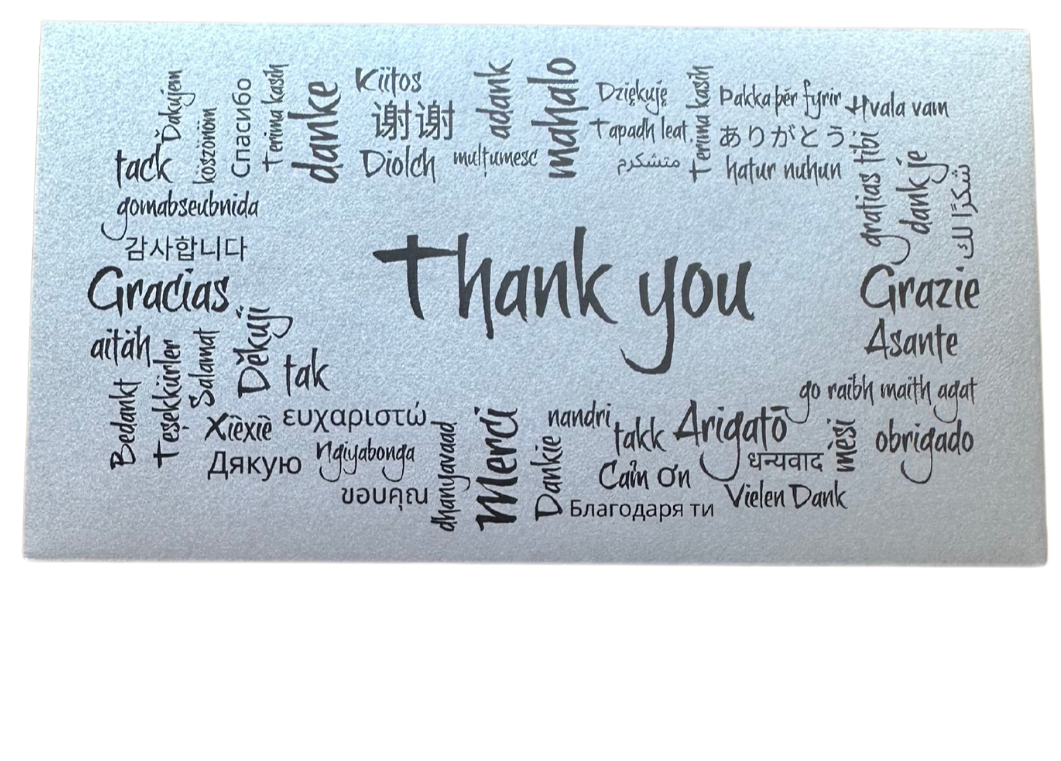 Ďakujem
köszönöm
Спасибо
Terima kasih
danke
Kiitos
谢谢
Diolch
adank
mulțumesc
mahalo
Dziękuję
Tapadh leat
متشکرم
Terima kasih
Þakka þér fyrir
ありがとう
hatur nuhun
Hvala vam
gratias tibi
dank je
شكرًا لك
tack
gomabseubnida
감사합니다
Gracias
Thank you
Grazie
Asante
aitäh
Bedankt
Teşekkürler
Salamat
Děkuji
tak
Xièxiè
ευχαριστώ
Дякую
Ngiyabonga
ขอบคุณ
dhanyavaad
Merci
Dankie
nandri
takk
Cảm ơn
Благодаря ти
Arigatō
धन्यवाद
Vielen Dank
mesi
go raibh maith agat
obrigado